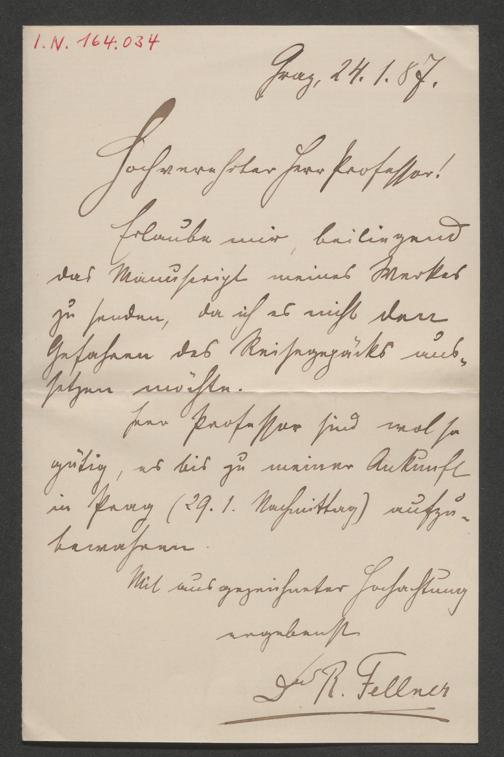 I.N. 164.034
Graz, 24.1.87.
Hochverehrter Herr Professor!
Erlaube mir, beiliegend
das Manuscript meines Werkes
zu senden, da ich es nicht den
Gefahren des Reisegepäcks aus-
setzen möchte.
Herr Professor sind wol so
gütig, es bis zu meiner Ankunft
in Prag (29.1. Nachmittag) aufzu-
bewahren.
Mit ausgezeichneter Hochachtung
ergebenst
Dr R. Fellner